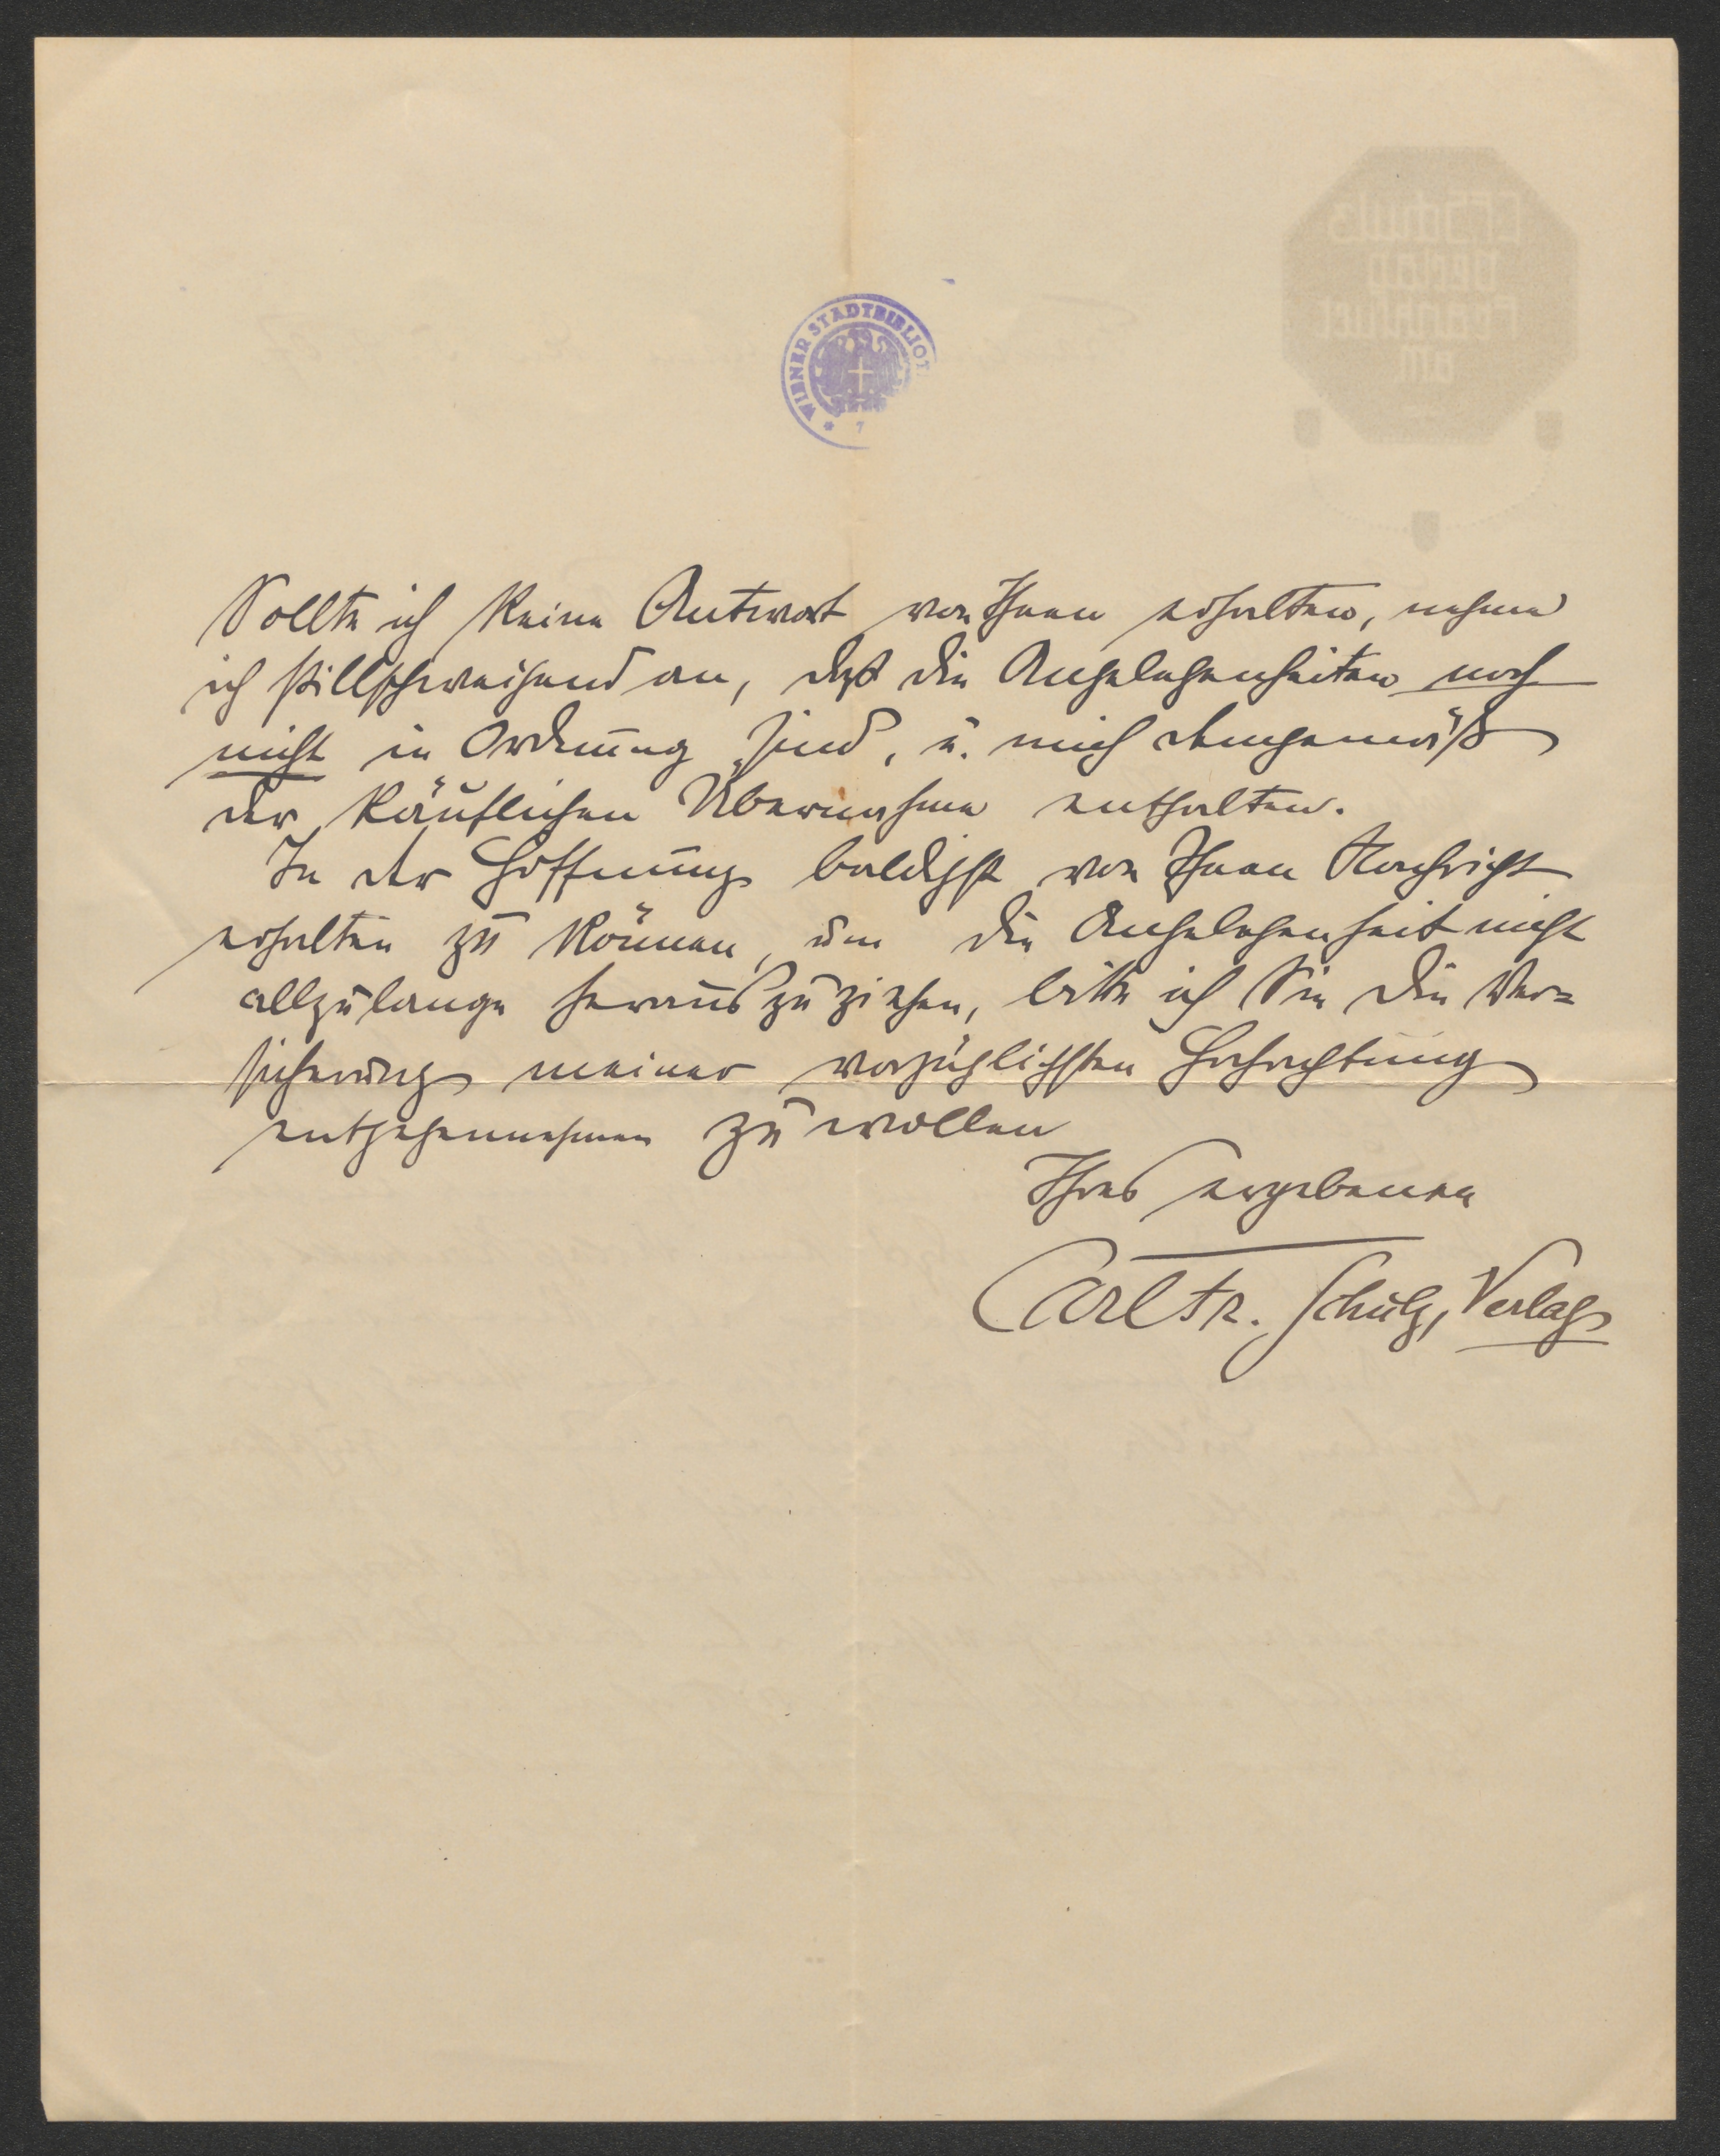 WIENER STADTBIBLIOT
Sollte ich keine Antwort von Ihnen erhalten, nehme
ich stillschweigend an, daß die Angelegenheiten noch
nicht in Ordnung sind, u. mich demgemäß
der käuflichen Übernahme enthalten.
In der Hoffnung baldigst von Ihnen Nachricht
erhalten zu können, um die Angelegenheit nicht
allzulange herauszuziehen, bitte ich Sie die Ver=
sicherung meiner vorzüglichsten Hochachtung
entgegennehmen zu wollen
Ihres ergebenen
Carl Fr. Schulz, Verlag